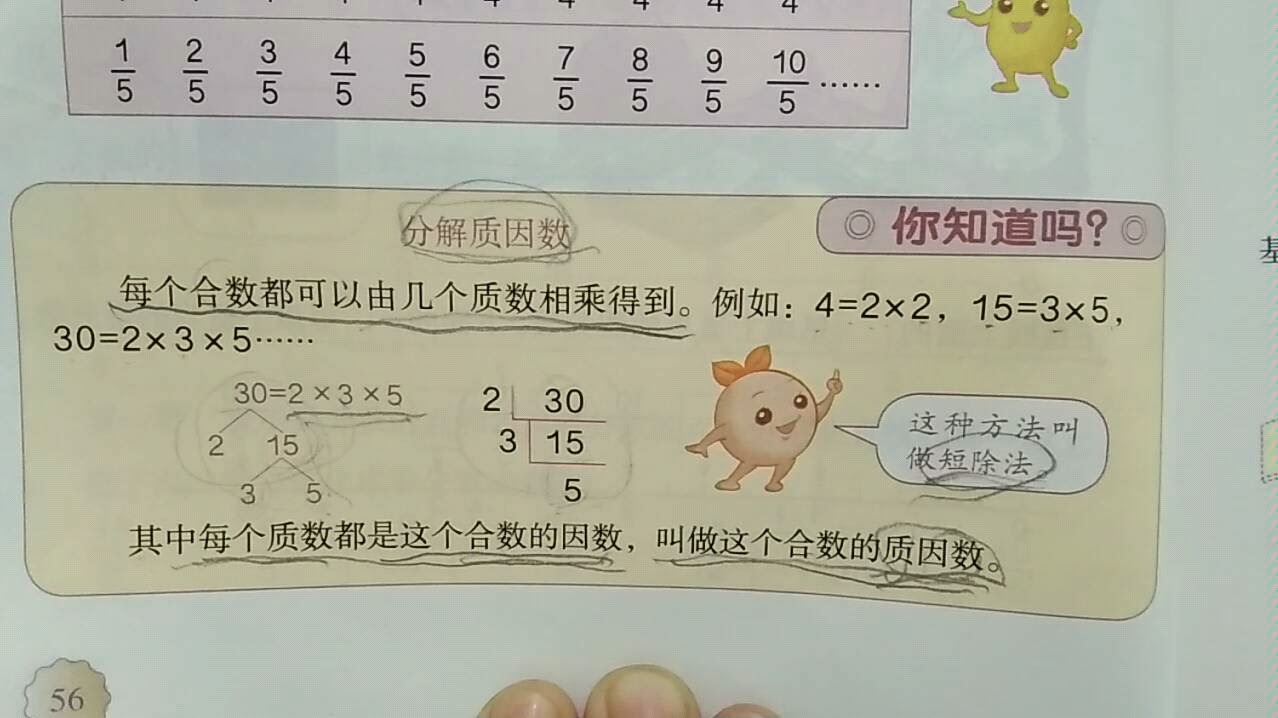 1/5 2/5 3/5 4/5 5/5 6/5 7/5 8/5 9/5 10/5 ……
分解质因数
你知道吗?
每个合数都可以由几个质数相乘得到。例如：4=2×2，15=3×5，
30=2×3×5……
30=2×3×5
2 15
3 5
2 30
3 15
5
这种方法叫
做短除法。
其中每个质数都是这个合数的因数，叫做这个合数的质因数。
56